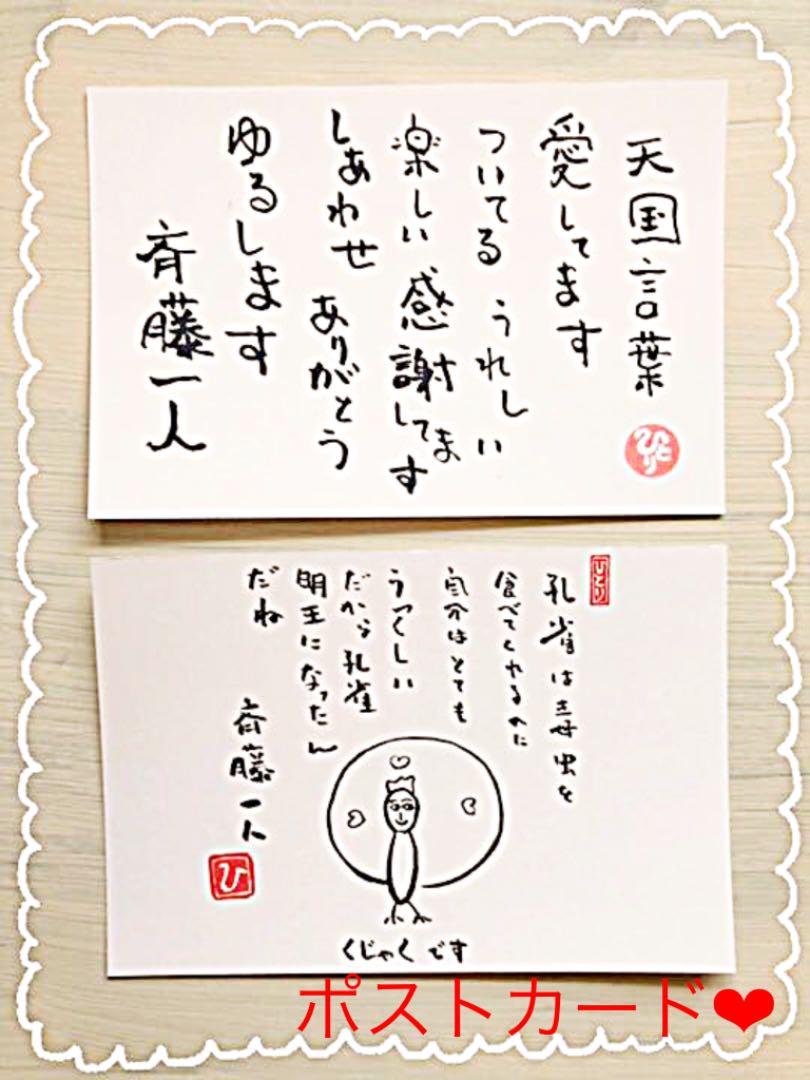 天国言葉
ひとり
愛してます
ついてる うれしい
楽しい 感謝してます
しあわせ ありがとう
ゆるします
斉藤一人
ひとり
孔雀は毒虫を
食べてくれるのに
自分はとても
うつくしい
だから孔雀
明王になったん
だね
斉藤一人
ひ
くじゃくです
ポストカード❤